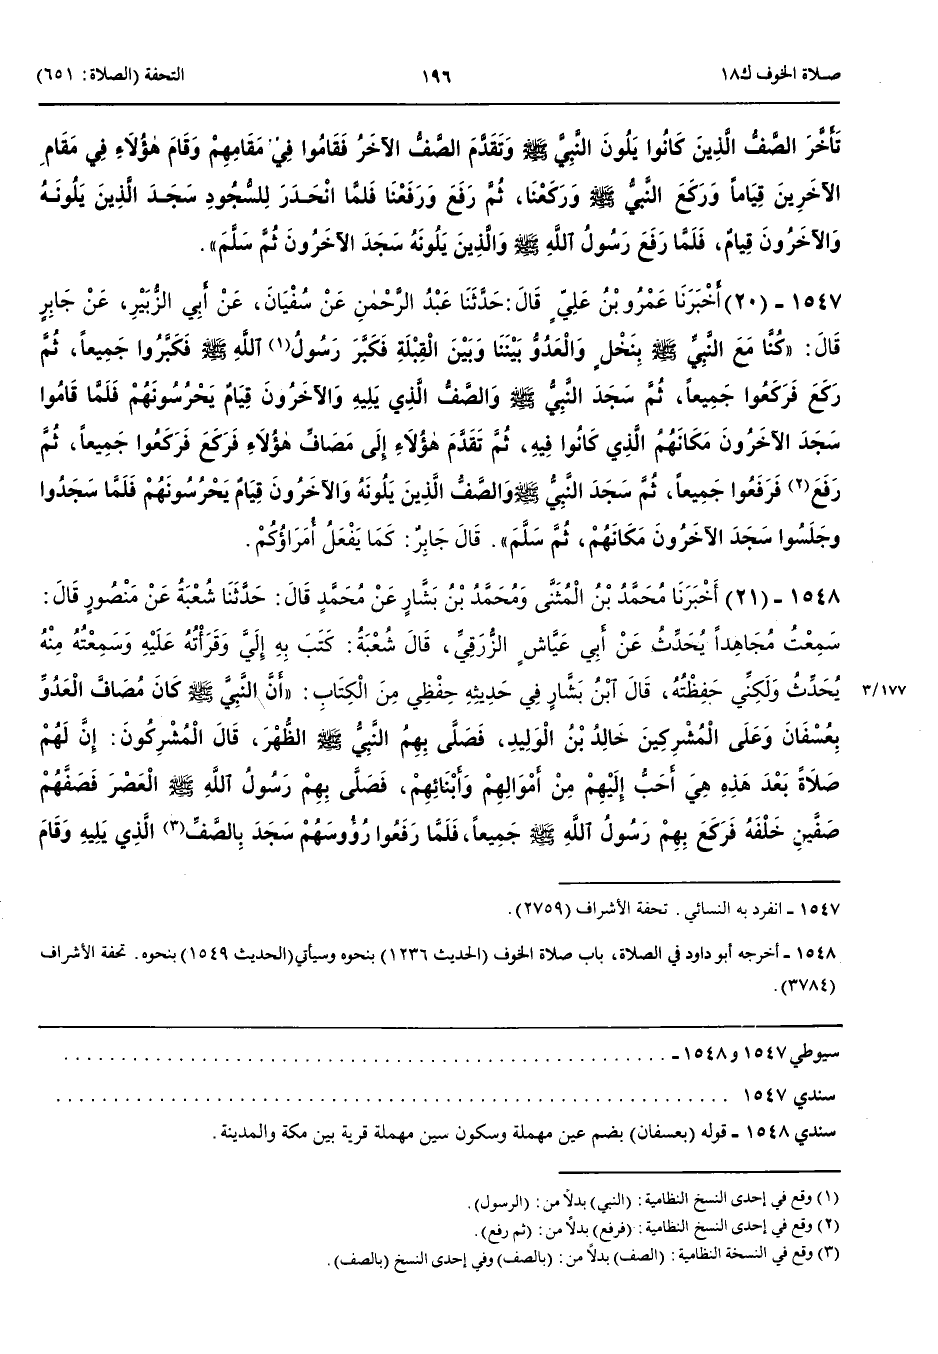 صلاة الخوف ك١٨ ١٩٦ التحفة (الصلاة: ٦٥١)
تَأَخَّرَ الصَّفُّ الَّذِينَ كَانُوا يَلُونَ النَّبِيَّ ﷺ وَتَقَدَّمَ الصَّفُّ الآخَرُ فَقَامُوا فِيْ مَقَامِهِمْ وَقَامَ هٰؤُلَاءِ فِي مَقَامِ
الآخَرِينَ قِيَاماً وَرَكَعَ النَّبِيُّ ﷺ وَرَكَعْنَا، ثُمَّ رَفَعَ وَرَفَعْنَا فَلَمَّا انْحَدَرَ لِلسُّجُودِ سَجَدَ الَّذِينَ يَلُونَهُ
وَالآخَرُونَ قِيَامٌ، فَلَمَّا رَفَعَ رَسُولُ اللَّهِ ﷺ وَالَّذِينَ يَلُونَهُ سَجَدَ الآخَرُونَ ثُمَّ سَلَّمَ».
١٥٤٧ - (٢٠) أَخْبَرَنَا عَمْرُو بْنُ عَلِيٍّ قَالَ: حَدَّثَنَا عَبْدُ الرَّحْمٰنِ عَنْ سُفْيَانَ، عَنْ أَبِي الزُّبَيْرِ، عَنْ جَابِرٍ
قَالَ: «كُنَّا مَعَ النَّبِيِّ ﷺ بِنَخْلٍ وَالْعَدُوُّ بَيْنَنَا وَبَيْنَ الْقِبْلَةِ فَكَبَّرَ رَسُولُ(١) اللَّهِ ﷺ فَكَبَّرُوا جَمِيعاً، ثُمَّ
رَكَعَ فَرَكَعُوا جَمِيعاً، ثُمَّ سَجَدَ النَّبِيُّ ﷺ وَالصَّفُّ الَّذِي يَلِيهِ وَالآخَرُونَ قِيَامٌ يَحْرُسُونَهُمْ فَلَمَّا قَامُوا
سَجَدَ الآخَرُونَ مَكَانَهُمُ الَّذِي كَانُوا فِيهِ، ثُمَّ تَقَدَّمَ هٰؤُلَاءِ إِلَى مَصَافِّ هٰؤُلَاءِ فَرَكَعَ فَرَكَعُوا جَمِيعاً، ثُمَّ
رَفَعَ(٢) فَرَفَعُوا جَمِيعاً، ثُمَّ سَجَدَ النَّبِيُّ ﷺ وَالصَّفُّ الَّذِينَ يَلُونَهُ وَالآخَرُونَ قِيَامٌ يَحْرُسُونَهُمْ فَلَمَّا سَجَدُوا
وَجَلَسُوا سَجَدَ الآخَرُونَ مَكَانَهُمْ، ثُمَّ سَلَّمَ». قَالَ جَابِرٌ: كَمَا يَفْعَلُ أُمَرَاؤُكُمْ.
١٥٤٨ - (٢١) أَخْبَرَنَا مُحَمَّدُ بْنُ الْمُثَنَّى وَمُحَمَّدُ بْنُ بَشَّارٍ عَنْ مُحَمَّدٍ قَالَ: حَدَّثَنَا شُعْبَةُ عَنْ مَنْصُورٍ قَالَ:
سَمِعْتُ مُجَاهِداً يُحَدِّثُ عَنْ أَبِي عَيَّاشٍ الزُّرَقِيِّ، قَالَ شُعْبَةُ: كَتَبَ بِهِ إِلَيَّ وَقَرَأْتُهُ عَلَيْهِ وَسَمِعْتُهُ مِنْهُ
يُحَدِّثُ وَلَكِنِّي حَفِظْتُهُ، قَالَ ابْنُ بَشَّارٍ فِي حَدِيثِهِ حِفْظِي مِنَ الْكِتَابِ: «أَنَّ النَّبِيَّ ﷺ كَانَ مُصَافَّ الْعَدُوِّ ٣/١٧٧
بِعُسْفَانَ وَعَلَى الْمُشْرِكِينَ خَالِدُ بْنُ الْوَلِيدِ، فَصَلَّى بِهِمُ النَّبِيُّ ﷺ الظُّهْرَ، قَالَ الْمُشْرِكُونَ: إِنَّ لَهُمْ
صَلَاةً بَعْدَ هَذِهِ هِيَ أَحَبُّ إِلَيْهِمْ مِنْ أَمْوَالِهِمْ وَأَبْنَائِهِمْ، فَصَلَّى بِهِمْ رَسُولُ اللَّهِ ﷺ الْعَصْرَ فَصَفَّهُمْ
صَفَّيْنِ خَلْفَهُ فَرَكَعَ بِهِمْ رَسُولُ اللَّهِ ﷺ جَمِيعاً، فَلَمَّا رَفَعُوا رُؤُوسَهُمْ سَجَدَ بِالصَّفِّ(٣) الَّذِي يَلِيهِ وَقَامَ
١٥٤٧ - انفرد به النسائي. تحفة الأشراف (٢٧٥٩).
١٥٤٨ - أخرجه أبو داود في الصلاة، باب صلاة الخوف (الحديث ١٢٣٦) بنحوه وسيأتي (الحديث ١٥٤٩) بنحوه. تحفة الأشراف
(٣٧٨٤).
سيوطي ١٥٤٧ و١٥٤٨ - . . . . . . . . . . . . . . . . . . . . . . . . . . . . . . . . . . . . . . . . . . . . . . . . . . . .
سندي ١٥٤٧ . . . . . . . . . . . . . . . . . . . . . . . . . . . . . . . . . . . . . . . . . . . . . . . . . . . . . . . . . .
سندي ١٥٤٨ - قوله (بعسفان) بضم عين مهملة وسكون سين مهملة قرية بين مكة والمدينة.
(١) وقع في إحدى النسخ النظامية: (النبي) بدلاً من: (الرسول).
(٢) وقع في إحدى النسخ النظامية: (فرفع) بدلاً من: (ثم رفع).
(٣) وقع في النسخة النظامية: (الصف) بدلاً من: (بالصف) وفي إحدى النسخ (بالصف).